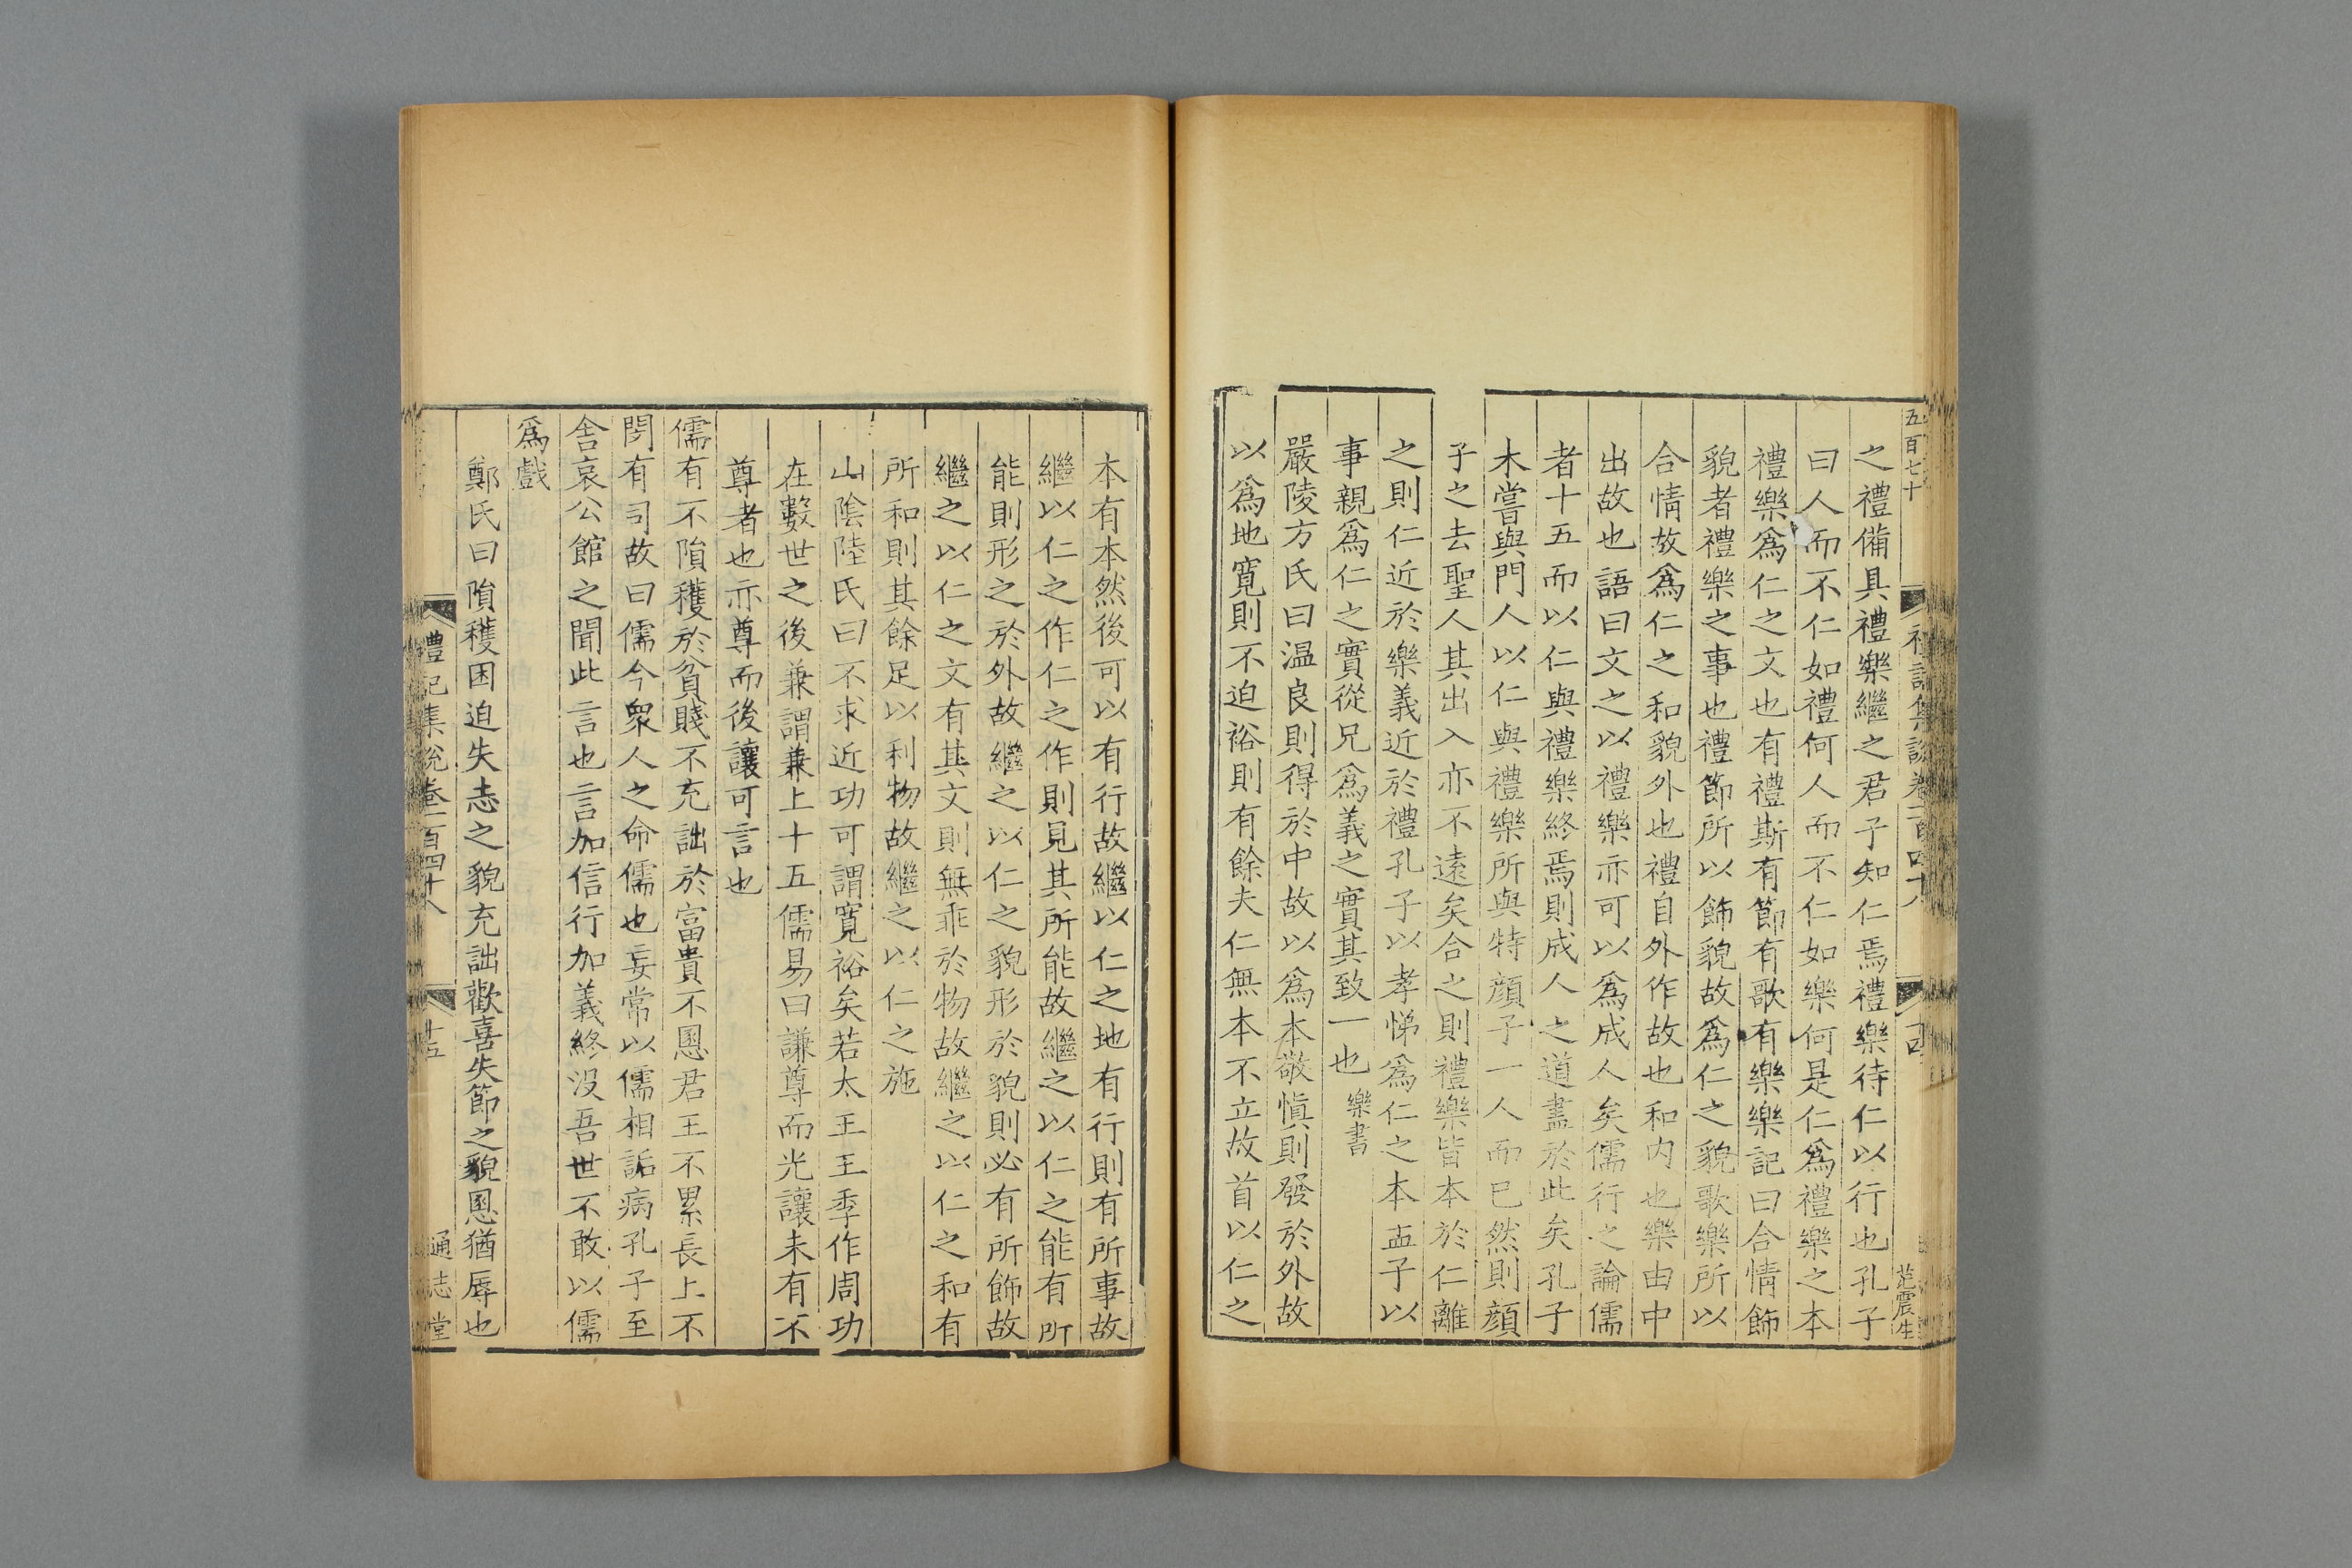 五百七十
禮記集說卷一百四十八
十四
范震生
之禮備具禮樂繼之君子知仁焉禮樂待仁以行也孔子
曰人而不仁如禮何人而不仁如樂何是仁爲禮樂之本
禮樂爲仁之文也有禮斯有節有歌有樂樂記曰合情飾
貌者禮樂之事也禮節所以飾貌故爲仁之貌歌樂所以
合情故爲仁之和貌外也禮自外作故也和内也樂由中
出故也語曰文之以禮樂亦可以爲成人矣儒行之論儒
者十五而以仁與禮樂終焉則成人之道盡於此矣孔子
未嘗與門人以仁與禮樂所與特顔子一人而已然則顔
子之去聖人其出入亦不遠矣合之則禮樂皆本於仁離
之則仁近於樂義近於禮孔子以孝悌爲仁之本孟子以
事親爲仁之實從兄爲義之實其致一也樂書
嚴陵方氏曰温良則得於中故以爲本敬愼則發於外故
以爲地寬則不迫裕則有餘夫仁無本不立故首以仁之
本有本然後可以有行故繼以仁之地有行則有所事故
繼以仁之作仁之作則見其所能故繼之以仁之能有所
能則形之於外故繼之以仁之貌形於貌則必有所飾故
繼之以仁之文有其文則無乖於物故繼之以仁之和有
所和則其餘足以利物故繼之以仁之施
山陰陸氏曰不求近功可謂寬裕矣若太王王季作周功
在數世之後兼謂兼上十五儒易曰謙尊而光讓未有不
尊者也亦尊而後讓可言也
儒有不隕穫於貧賤不充詘於富貴不慁君王不累長上不
閔有司故曰儒今衆人之命儒也妄常以儒相詬病孔子至
舍哀公館之聞此言也言加信行加義終沒吾世不敢以儒
爲戲
鄭氏曰隕穫困迫失志之貌充詘歡喜失節之貌慁猶辱也
禮記集說卷一百四十八
十五
通志堂